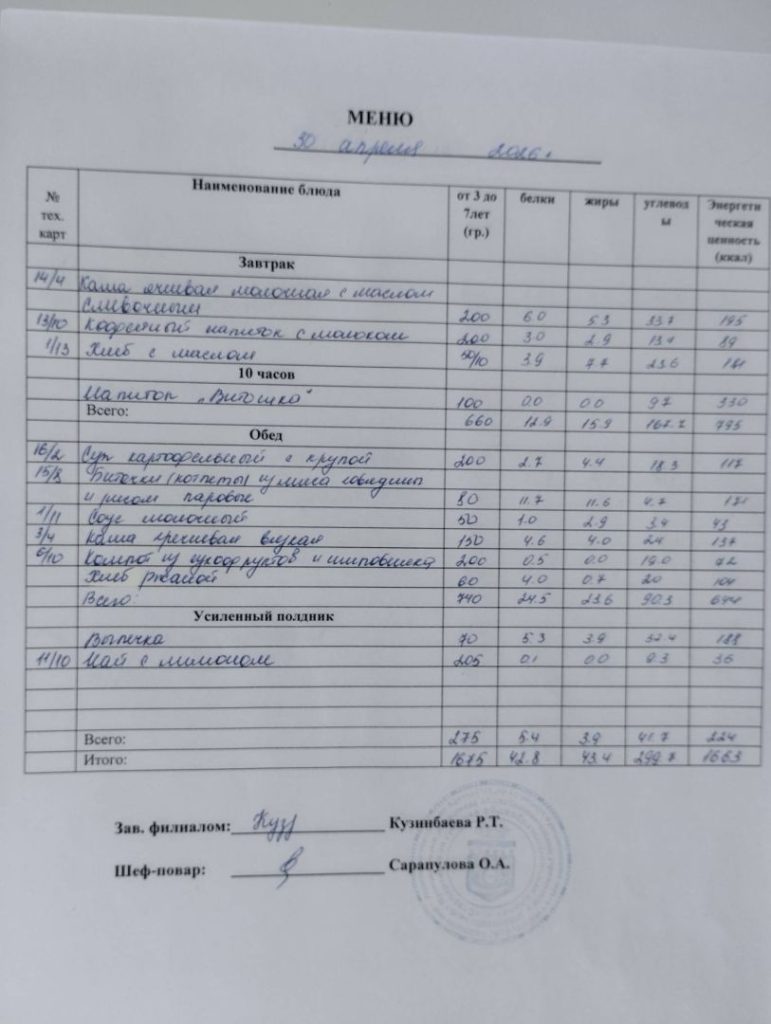 МЕНЮ
30 апреля 2026г.
№ тех. карт Наименование блюда от 3 до 7лет (гр.) белки жиры углеводы Энергетическая ценность (ккал)
Завтрак
14/4 Каша ячневая молочная с маслом
сливочным 200 6.0 5.3 33.7 195
13/10 Кофейный напиток с молоком 200 3.0 2.9 13.4 89
1/13 Хлеб с маслом 50/10 3.9 7.7 23.6 181
10 часов
Напиток „Витошка" 100 0.0 0.0 97 330
Всего: 660 12.9 15.9 167.7 795
Обед
16/2 Суп картофельный с крупой 200 2.7 4.4 18.3 117
15/8 Биточки (котлеты) из мяса говядины
и рисом паровые 80 11.7 11.6 4.7 171
1/11 Соус молочный 50 1.0 2.9 3.4 43
3/4 Каша гречневая вязкая 150 4.6 4.0 24 137
6/10 Компот из сухофруктов и шиповника 200 0.5 0.0 19.0 72
Хлеб ржаной 60 4.0 0.7 20 104
Всего: 740 24.5 23.6 90.3 644
Усиленный полдник
Выпечка 70 5.3 3.9 32.4 188
11/10 Чай с лимоном 205 0.1 0.0 9.3 36
Всего: 275 5.4 3.9 41.7 224
Итого: 1675 42.8 43.4 299.7 1663
Зав. филиалом: Куз Кузинбаева Р.Т.
Шеф-повар: Сарапулова О.А.